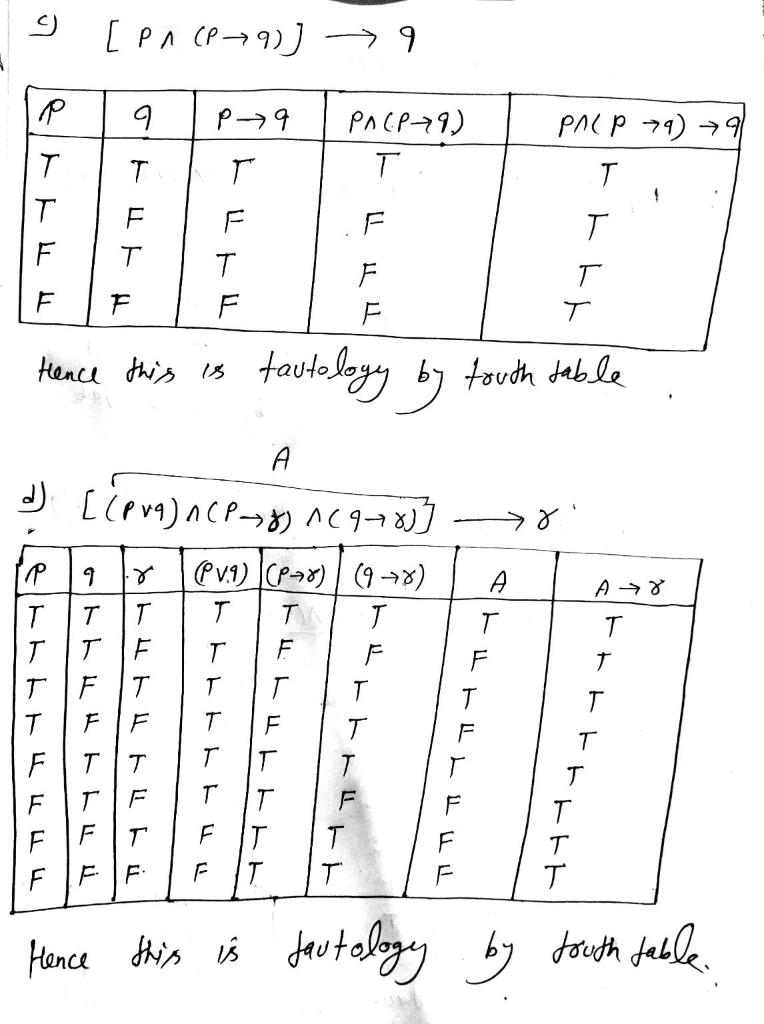 c) [ p ∧ (p → q) ] → q
p q p → q p ∧ (p → q) p ∧ (p → q) → q
T T T T T
T F F F T
F T T F T
F F F F T
Hence this is tautology by truth table
A
d) [ (p ∨ q) ∧ (p → r) ∧ (q → r) ] → r
p q r (p ∨ q) (p → r) (q → r) A A → r
T T T T T T T T
T T F T F F F T
T F T T T T T T
T F F T F T F T
F T T T T T T T
F T F T T F F T
F F T F T T F T
F F F F T T F T
Hence this is tautology by truth table.